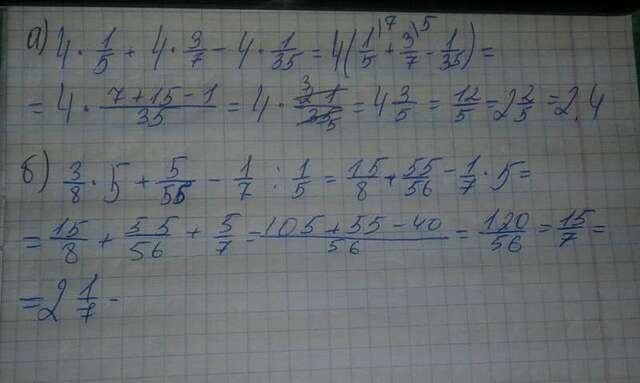 а) 4 · 1/5 + 4 · 3/7 - 4 · 1/35 = 4(1/5\7 + 3/7\5 - 1/35) =
= 4 · (7+15-1)/35 = 4 · 21/35 3/5 = 4 3/5 = 12/5 = 2 2/5 = 2.4
б) 3/8 · 5 + 5/56 - 1/7 : 1/5 = 15/8 + 55/56 - 1/7 · 5 =
= 15/8 + 55/56 + 5/7 = (105+55-40)/56 = 120/56 = 15/7 =
= 2 1/7 -